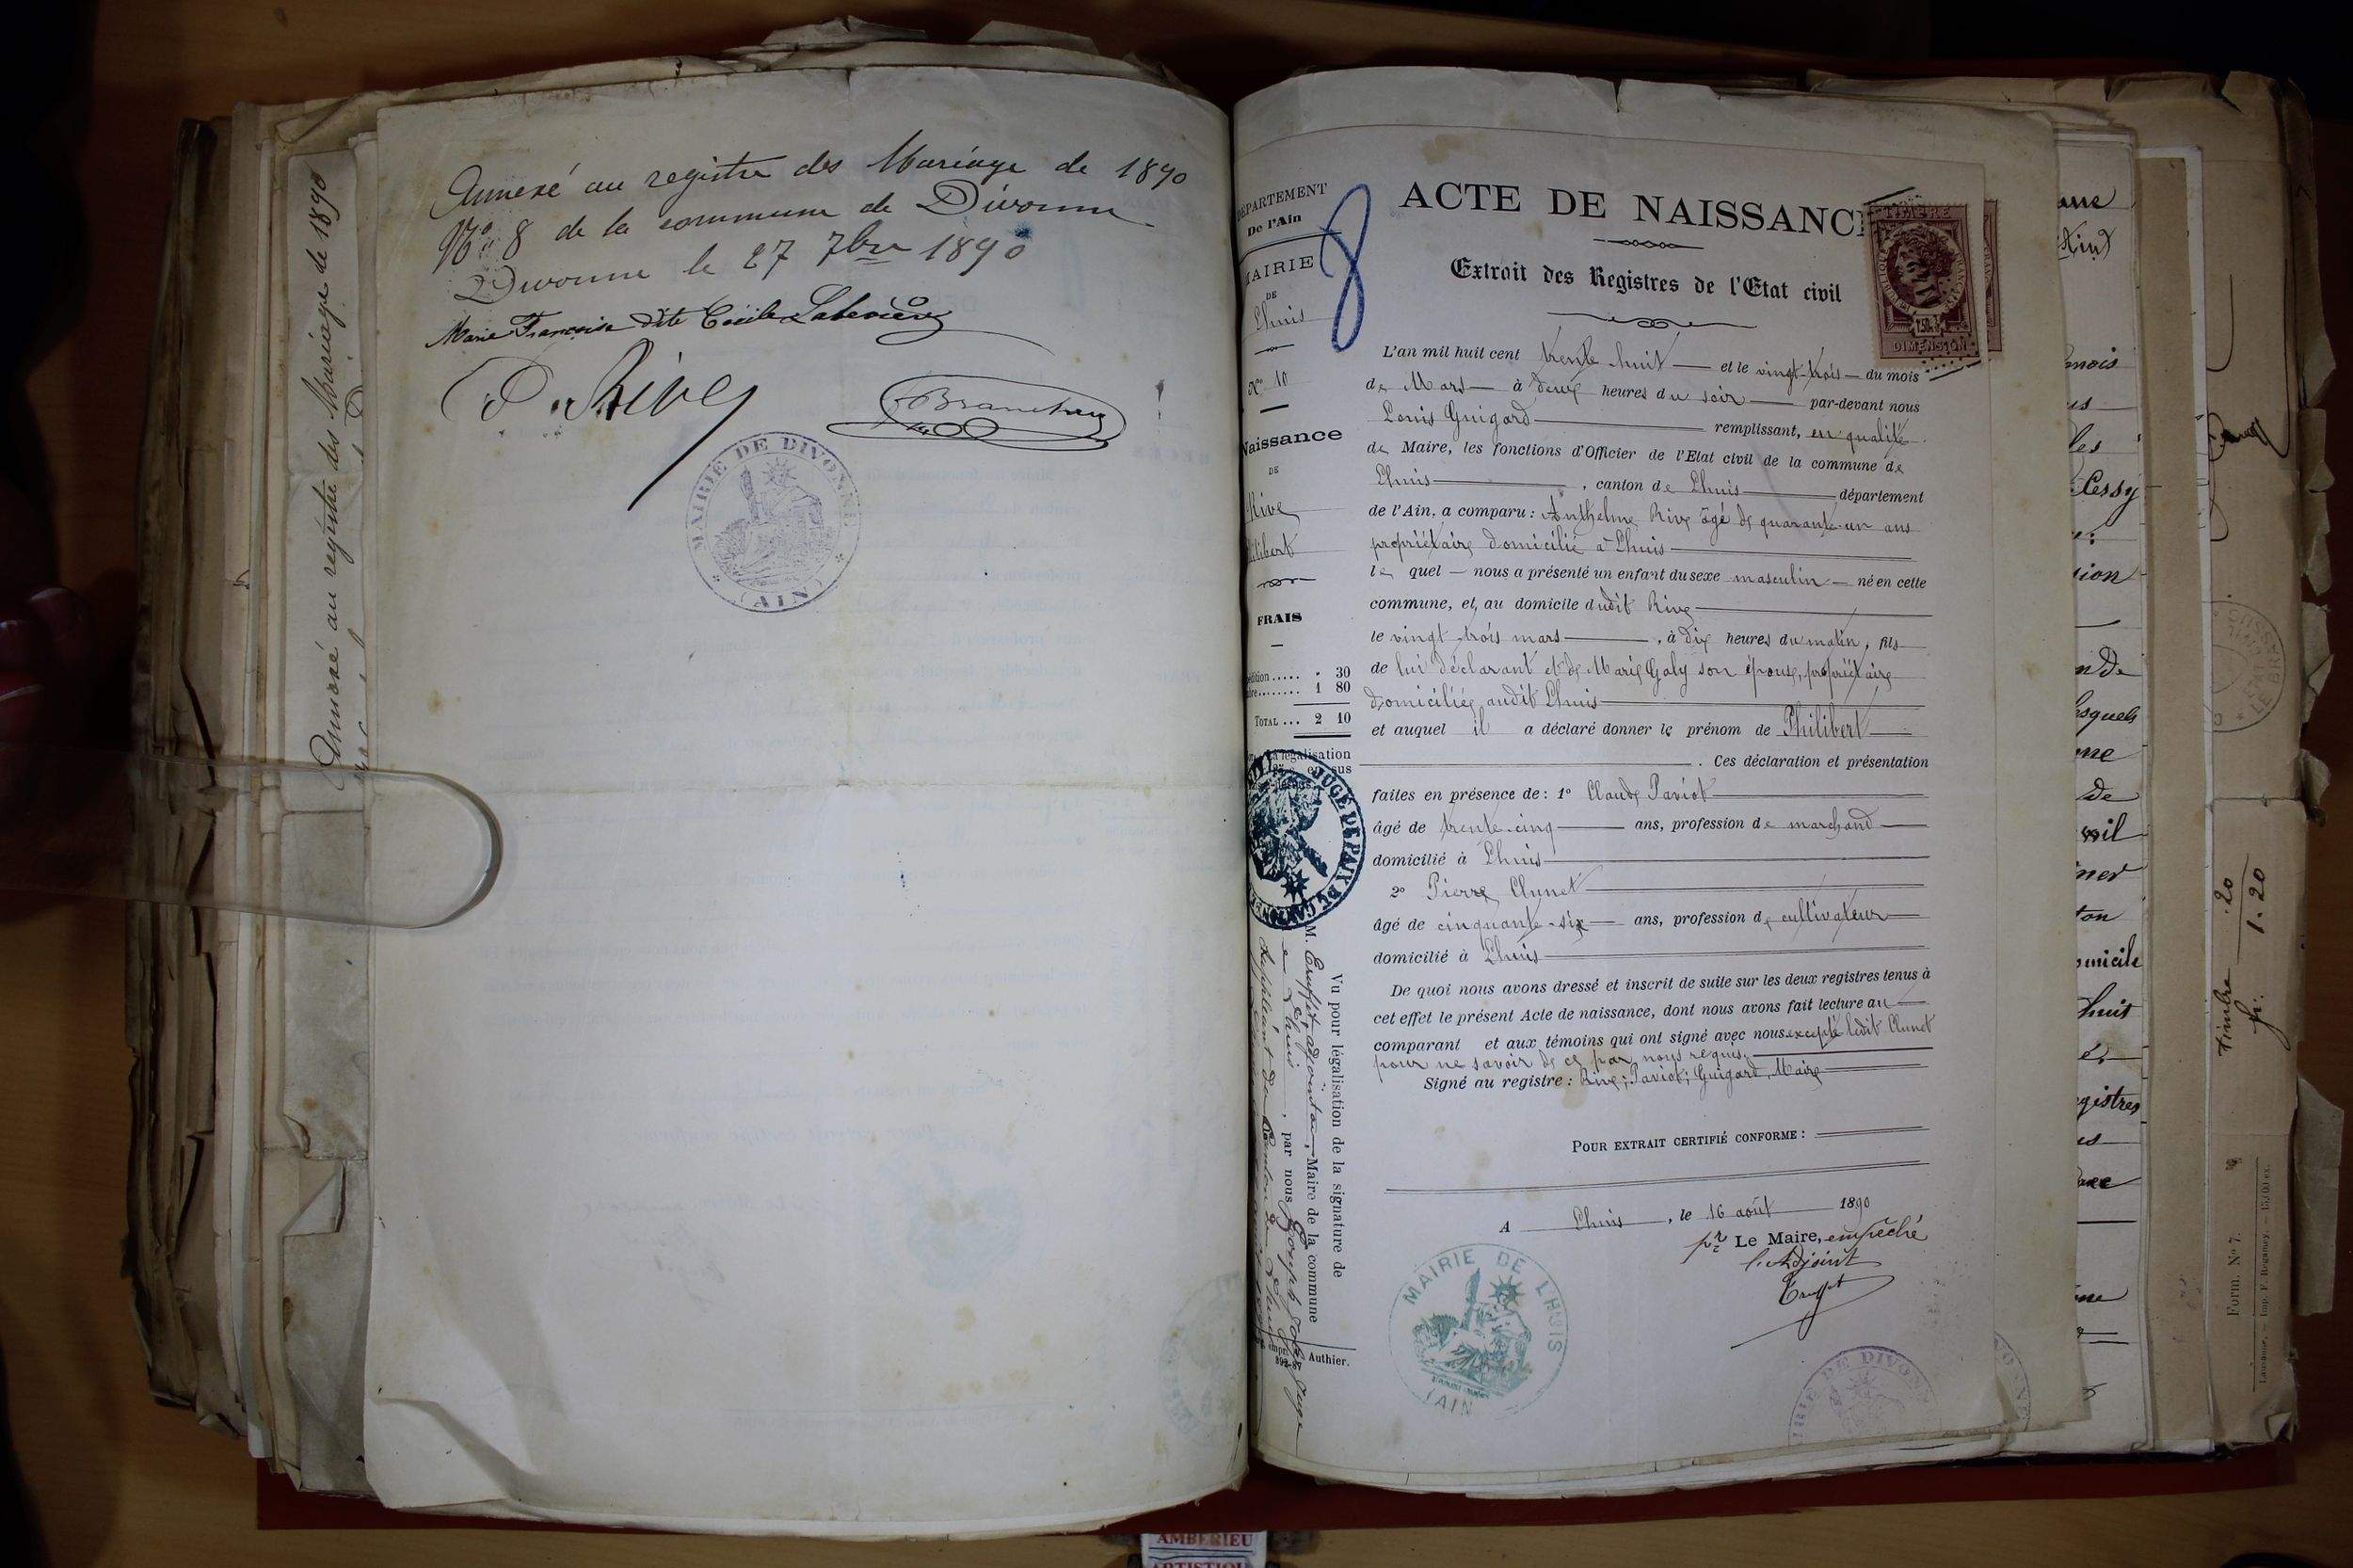 Annexé au registre des Mariage de 1890
Annexé au registre des Mariage de 1890
No 8 de la commune de Divonne
Divonne le 27 7bre 1890
Marie Françoise dite Cécile
P. Rive
MAIRIE DE DIVONNE
(AIN)
DÉPARTEMENT
De l'Ain
MAIRIE
DE
Lhuis
No 10
Naissance
DE
Rive
Philibert
FRAIS
30
1 80
TOTAL ... 2 10
la légalisation
en sus
JUGE DE PAIX DU CANTON
8
ACTE DE NAISSANCE
Extrait des Registres de l'Etat civil
TIMBRE
DIMENSION
L'an mil huit cent trente huit et le vingt-trois du mois
de Mars à deux heures du soir par-devant nous
Louis Guigard remplissant, en qualité
de Maire, les fonctions d'Officier de l'Etat civil de la commune de
Lhuis, canton de Lhuis département
de l'Ain, a comparu : Anthelme Rive âgé de quarante-un ans
propriétaire domicilié à Lhuis
le quel nous a présenté un enfant du sexe masculin né en cette
commune, et au domicile dudit Rive
le vingt-trois mars, à dix heures du matin, fils
de lui déclarant et de Marie Galy son épouse, propriétaire
domiciliée audit Lhuis
et auquel il a déclaré donner le prénom de Philibert
. Ces déclaration et présentation
faites en présence de : 1° Claude Paviot
âgé de trente-cinq ans, profession de marchand
domicilié à Lhuis
2° Pierre Clunet
âgé de cinquante-six ans, profession de cultivateur
domicilié à Lhuis
De quoi nous avons dressé et inscrit de suite sur les deux registres tenus à
cet effet le présent Acte de naissance, dont nous avons fait lecture au
comparant et aux témoins qui ont signé avec nous excepté ledit Clunet
pour ne savoir de ce par nous requis.
Signé au registre : Rive ; Paviot ; Guigard, Maire
POUR EXTRAIT CERTIFIÉ CONFORME :
A Lhuis, le 16 août 1890
pr Le Maire, empêché
l'Adjoint
MAIRIE DE LHUIS
(AIN)
Vu pour légalisation de la signature de
M. adjoint au Maire de la commune
de Lhuis, par nous Joseph
suppléant du Canton de Lhuis
Authier.
Cessy
domicile
registres
Timbre .20
fr. 1.20
Form. No 7.
AMBERIEU
ARTISTIQU